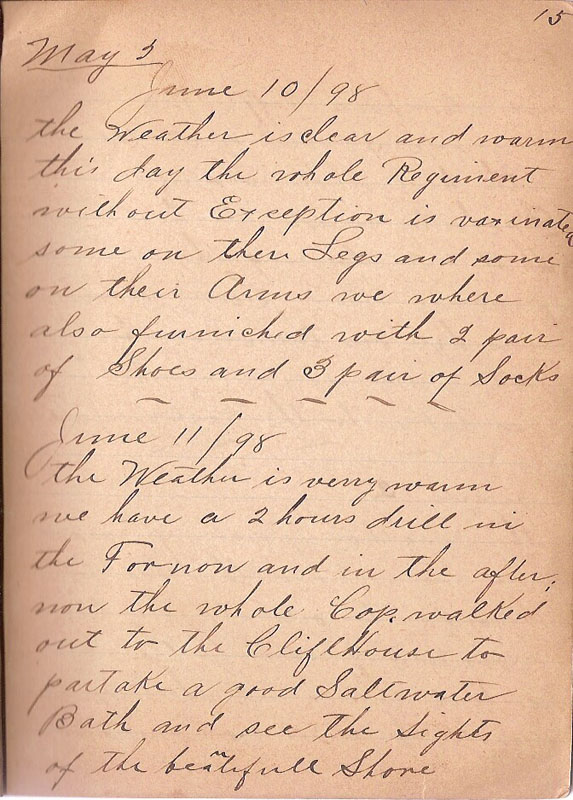 15
May 3
June 10/98
the Weather is clear and warm
this day the whole Regiment
without Exception is vaxinated
some on there Legs and some
on their Arms we where
also furniched with 2 pair
of Shoes and 3 pair of Socks
June 11/98
the Weather is verry warm
we have a 2 hours drill in
the Fornon and in the after,
non the whole Cop. walked
out to the Cliff House to
partake a good Saltwater
Bath and see the Sights
of the beautifull Shore